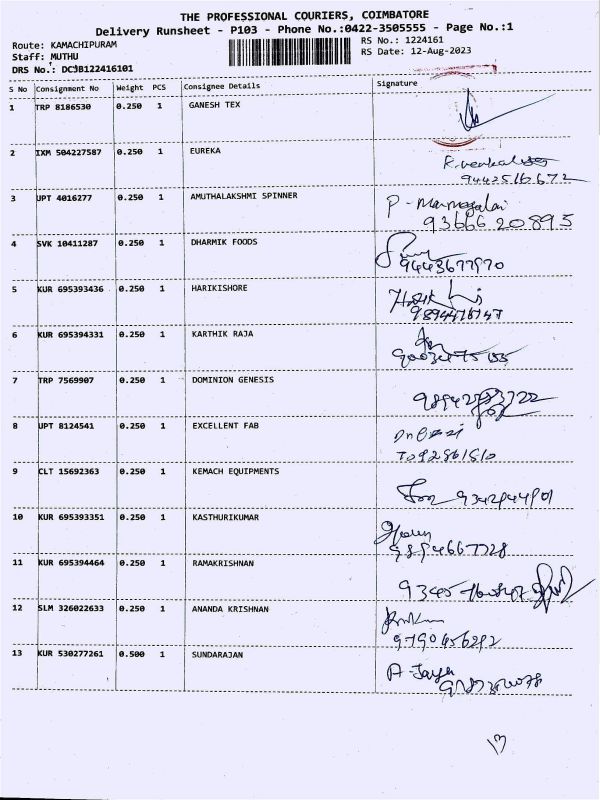 THE PROFESSIONAL COURIERS, COIMBATORE
Delivery Runsheet - P103 - Phone No.:0422-3505555 - Page No.:1
Route: KAMACHIPURAM RS No.: 1224161
Staff: MUTHU RS Date: 12-Aug-2023
DRS No.: DCJB122416101
S No Consignment No Weight PCS Consignee Details Signature
1 TRP 8186530 0.250 1 GANESH TEX
2 IXM 504227587 0.250 1 EUREKA
3 UPT 4016277 0.250 1 AMUTHALAKSHMI SPINNER P-
93666 20895
4 SVK 10411287 0.250 1 DHARMIK FOODS
9443677970
5 KUR 695393436 0.250 1 HARIKISHORE
6 KUR 695394331 0.250 1 KARTHIK RAJA
7 TRP 7569907 0.250 1 DOMINION GENESIS
8 UPT 8124541 0.250 1 EXCELLENT FAB
9 CLT 15692363 0.250 1 KEMACH EQUIPMENTS
10 KUR 695393351 0.250 1 KASTHURIKUMAR
9894667728
11 KUR 695394464 0.250 1 RAMAKRISHNAN
12 SLM 326022633 0.250 1 ANANDA KRISHNAN
9790456292
13 KUR 530277261 0.500 1 SUNDARAJAN A-Jaya
13